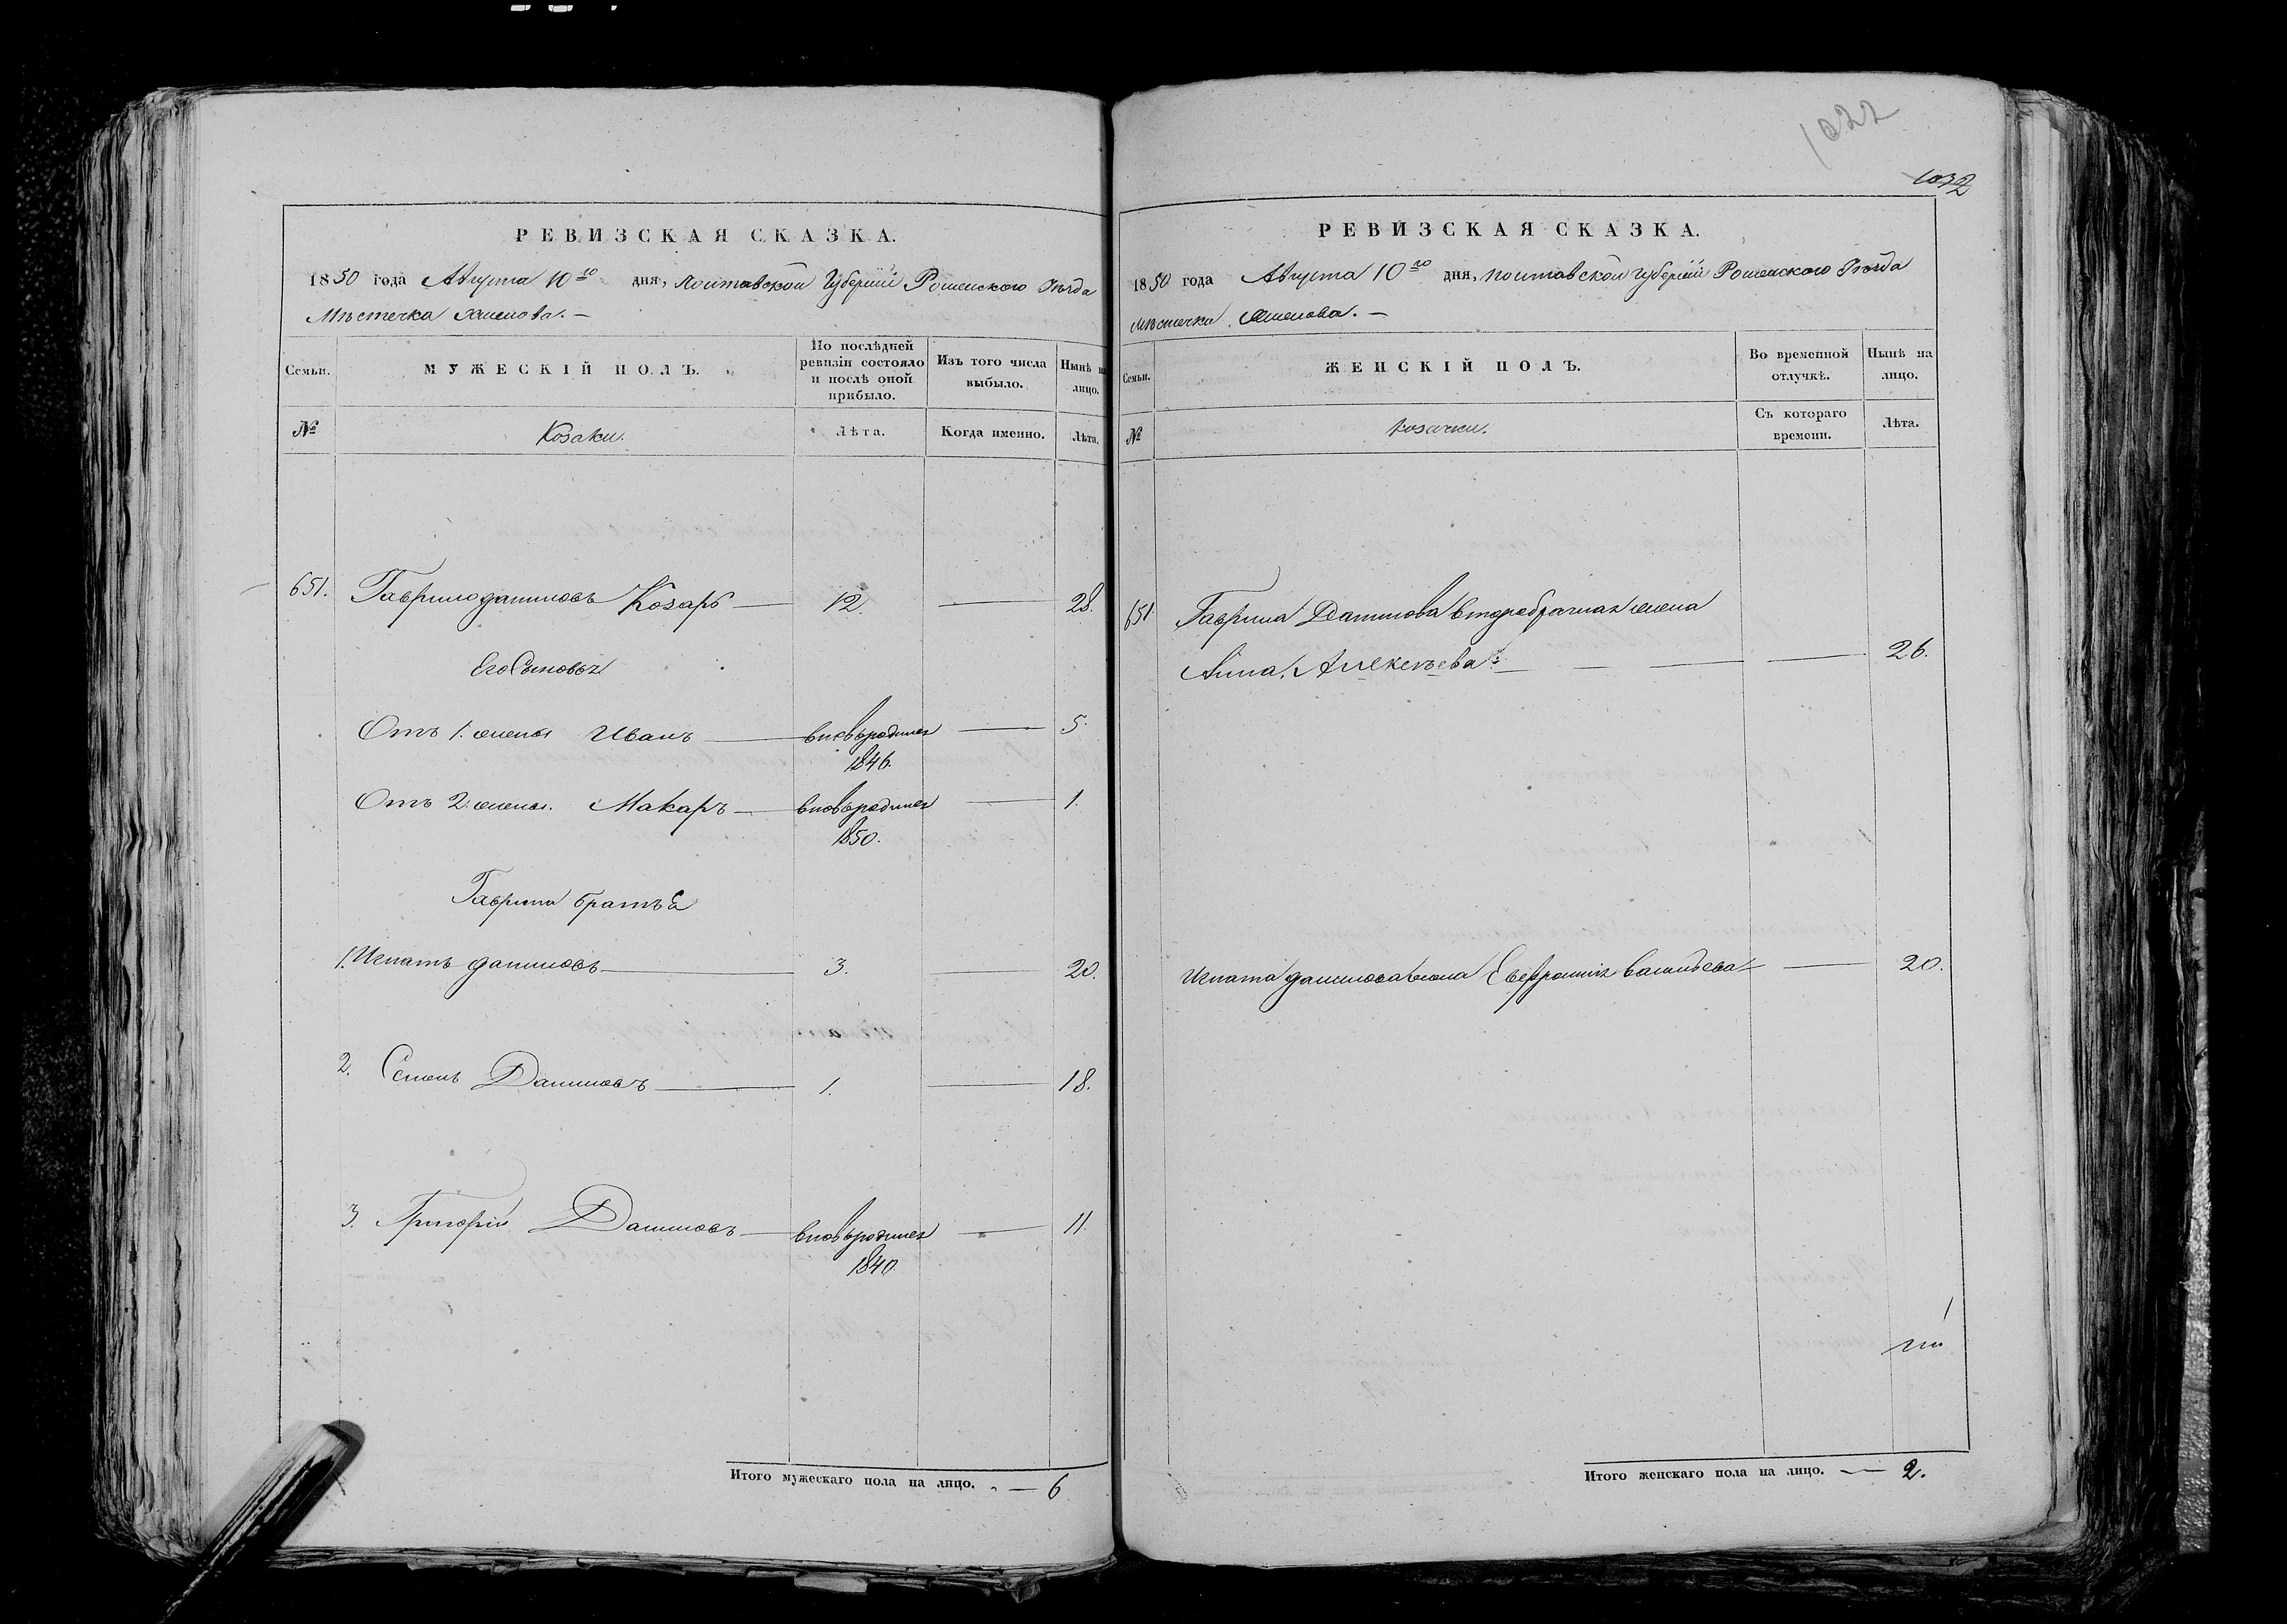 1022
1032
РЕВИЗСКАЯ СКАЗКА.
1850 года Августа 10го дня, Полтавской Губерніи Роменского Уѣзда
Мѣстечка Хмелова. —
Семьи.
МУЖЕСКІЙ ПОЛЪ.
По послѣдней ревизіи состояло и послѣ оной прибыло.
Изъ того числа выбыло.
Нынѣ на лицо.
№
Козаки.
Лѣта.
Когда именно.
Лѣта.
651. Гаврило Даниловъ Козарь — 12. — 28.
Его Сыновья
Отъ 1. жены Иванъ — вновь родился 1846. — 5.
Отъ 2. жены. Макаръ — вновь родился 1850. — 1.
Гаврила братья
1. Игнатъ Даниловъ — 3. 20.
2. Семенъ Даниловъ — 1. — 18.
3. Григорій Даниловъ — вновь родился 1840. — 11.
Итого мужескаго пола на лицо. — 6
РЕВИЗСКАЯ СКАЗКА.
1850 года Августа 10го дня, Полтавской Губерніи Роменского Уѣзда
Мѣстечка Хмелова. —
Семьи.
ЖЕНСКІЙ ПОЛЪ.
Во временной отлучкѣ.
Нынѣ на лицо.
№
Козачки.
Съ котораго времени.
Лѣта.
651 Гаврила Данилова второбрачная жена
Анна Алексѣева — — 26.
Игната Данилова жена Евфросинія Васильева — — 20.
Итого женскаго пола на лицо. — 2.